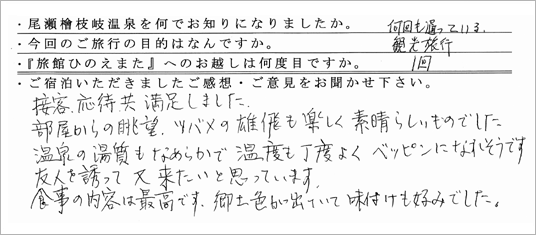 ・尾瀬檜枝岐温泉を何でお知りになりましたか。 何回も通っている。
・今回のご旅行の目的はなんですか。 観光旅行
・『旅館ひのえまた』へのお越しは何度目ですか。 1回
・ご宿泊いただきましたご感想・ご意見をお聞かせ下さい。
接客、応待共 満足しました。
部屋からの眺望、ツバメの雄飛も楽しく 素晴らしいものでした
温泉の湯質もなめらかで 温度も丁度よく ベッピンになれそうです
友人を誘って 又 来たいと思っています。
食事の内容は最高です。郷土色が出ていて 味付けも好みでした。